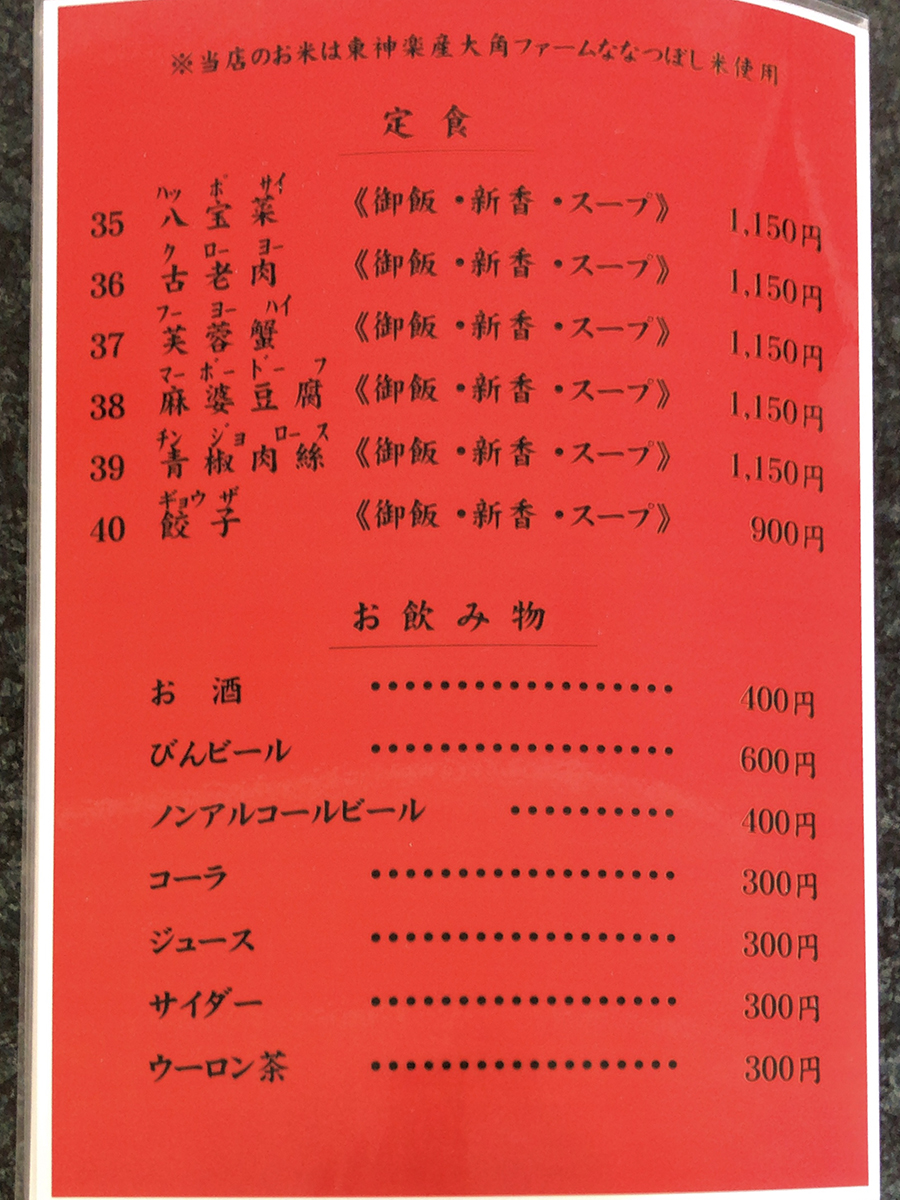 ※当店のお米は東神楽産大角ファームななつぼし米使用
定食
ハッ ポ サイ
35 八宝菜 《御飯・新香・スープ》 1,150円
ク ロー ヨー
36 古老肉 《御飯・新香・スープ》 1,150円
フー ヨー ハイ
37 芙蓉蟹 《御飯・新香・スープ》 1,150円
マー ボー ドー フ
38 麻婆豆腐 《御飯・新香・スープ》 1,150円
チン ジョ ロー ス
39 青椒肉絲 《御飯・新香・スープ》 1,150円
ギョウ ザ
40 餃子 《御飯・新香・スープ》 900円
お飲み物
お酒 ・・・・・・・・・・・・・・・・・・ 400円
びんビール ・・・・・・・・・・・・・・・・・・ 600円
ノンアルコールビール ・・・・・・・・・・ 400円
コーラ ・・・・・・・・・・・・・・・・・・ 300円
ジュース ・・・・・・・・・・・・・・・・・・ 300円
サイダー ・・・・・・・・・・・・・・・・・・ 300円
ウーロン茶 ・・・・・・・・・・・・・・・・・・ 300円